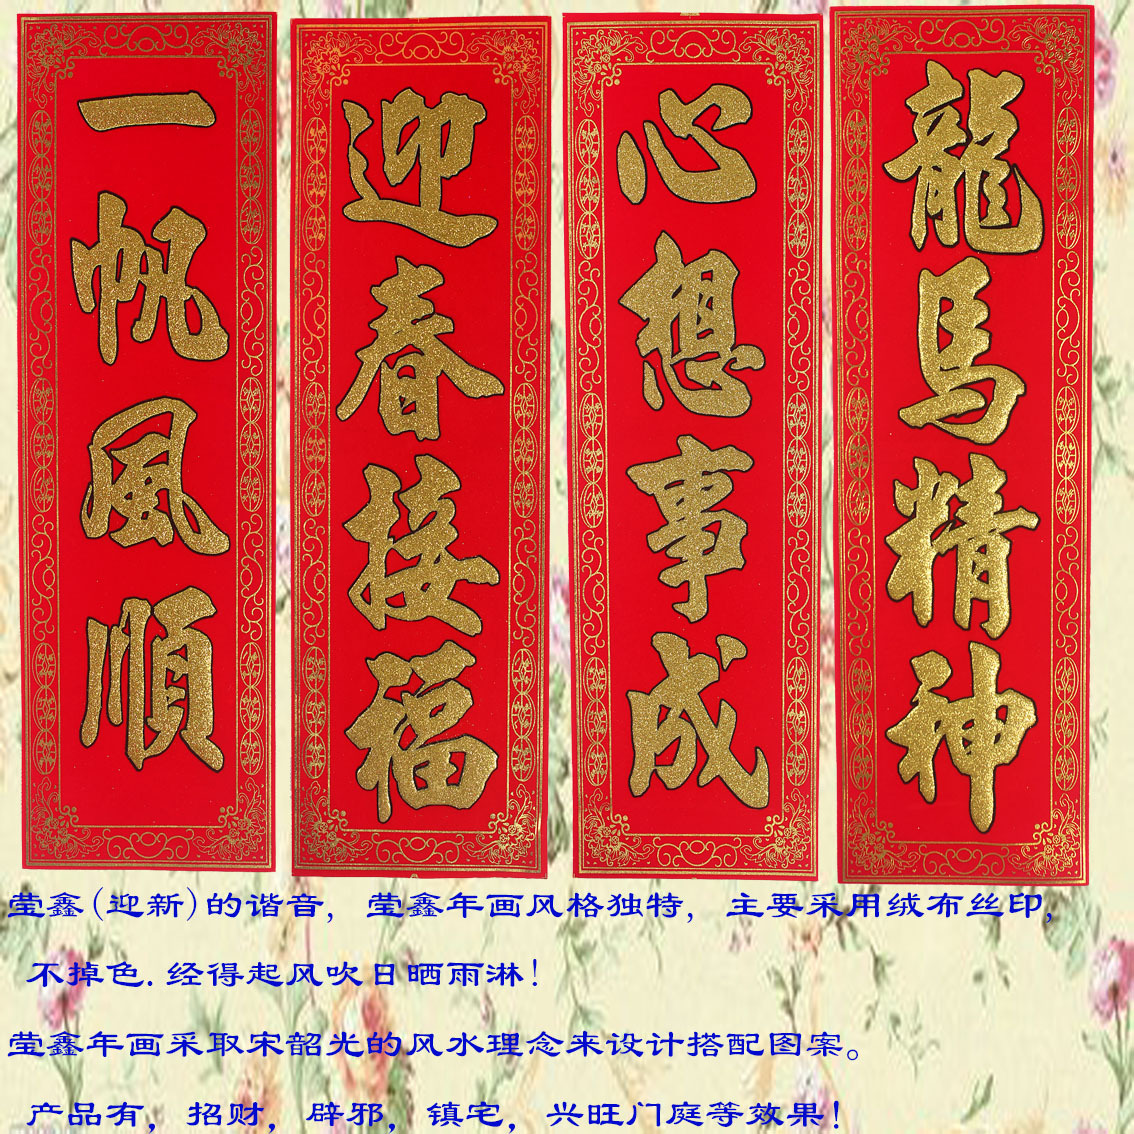 一帆風順
迎春接福
心想事成
龍馬精神
莹鑫(迎新)的谐音，莹鑫年画风格独特，主要采用绒布丝印，
不掉色.经得起风吹日晒雨淋！
莹鑫年画采取宋韶光的风水理念来设计搭配图案。
产品有，招财，辟邪，镇宅，兴旺门庭等效果！